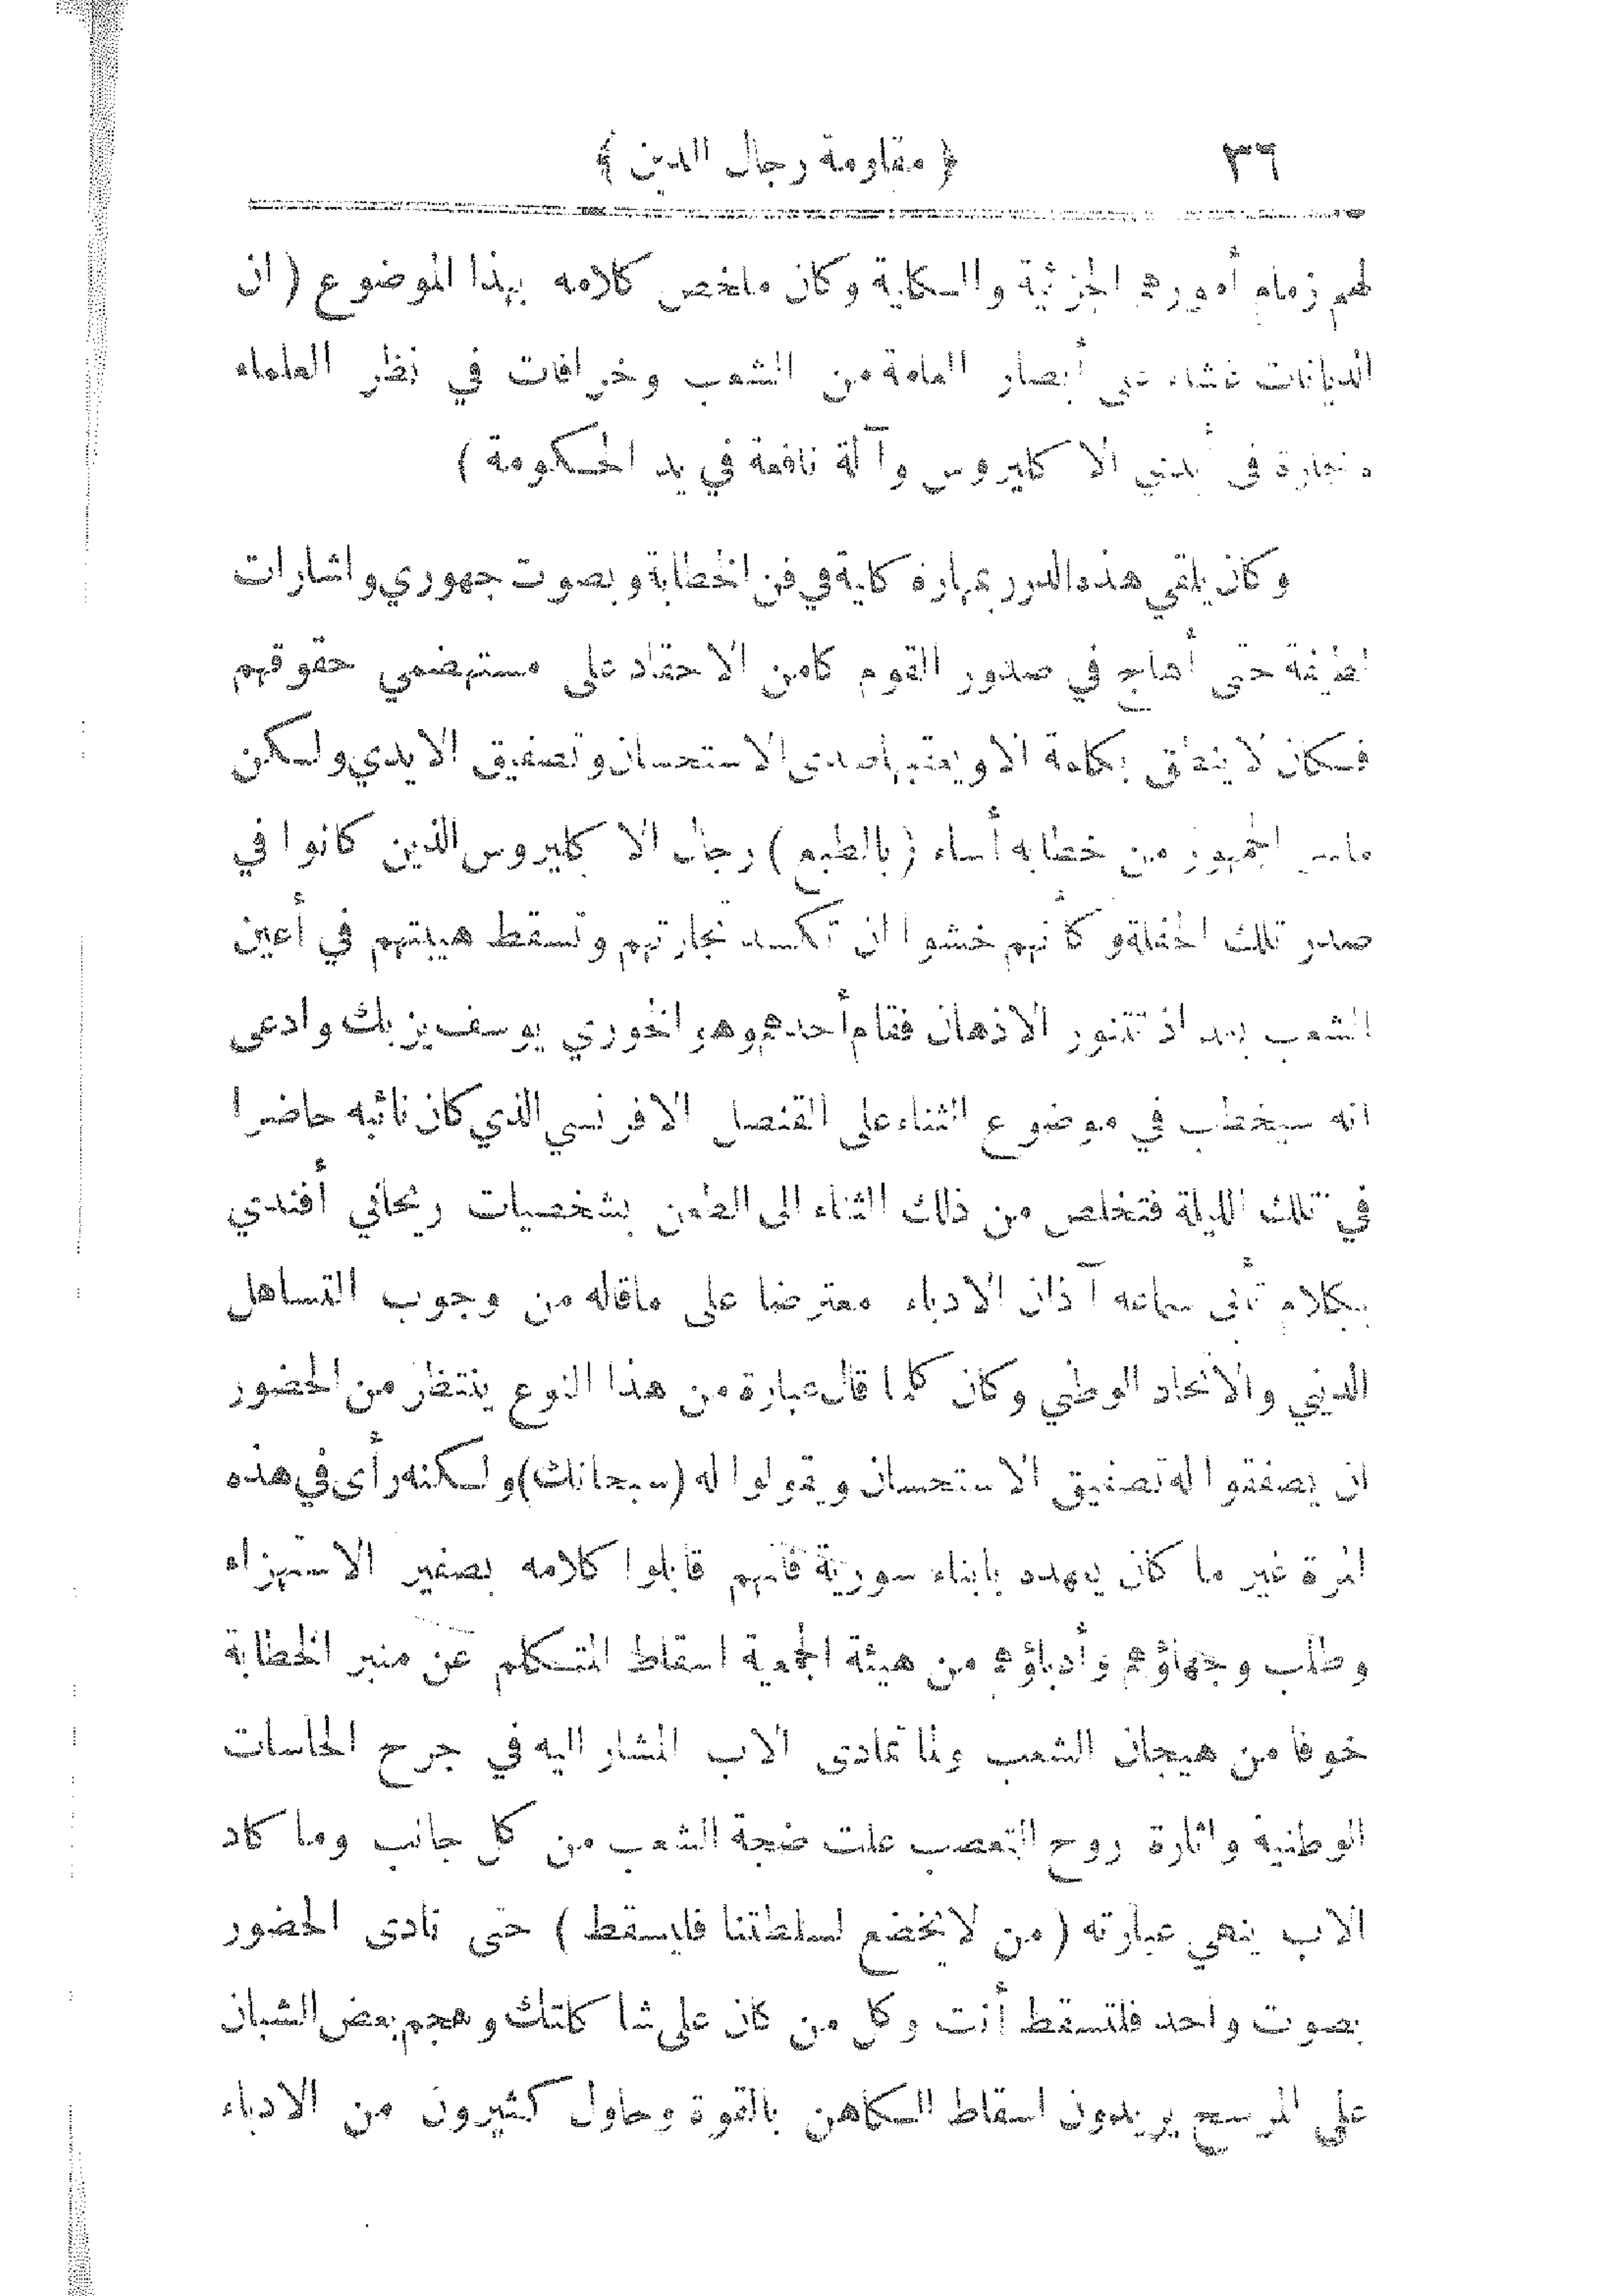 ٣٦ ﴿ مقاومة رجال الدين ﴾
لهم زمام أمورهم الجزئية والكلية وكان ملخص كلامه بهذا الموضوع ( ان
الديانات غشاء على أبصار العامة من الشعب وخرافات في نظر العلماء
وتجارة في أيدي الاكليروس وآلة نافعة في يد الحكومة )
وكان يلقي هذه الدرر بمهارة كلية في فن الخطابة وبصوت جهوري واشارات
لطيفة حتى أهاج في صدور القوم كامن الاحقاد على مستهضمي حقوقهم
فكان لا ينطق بكلمة الا ويعقبها صدى الاستحسان وتصفيق الايدي ولكن
ماسر الجمهور من خطابه أساء ( بالطبع ) رجال الاكليروس الذين كانوا في
صدر تلك الحفلة وكأنهم خشوا ان تكسد تجارتهم وتسقط هيبتهم في أعين
الشعب بعد اذ تتنور الاذهان فقام أحدهم وهو الخوري يوسف يزبك وادعى
انه سيخطب في موضوع الثناء على القنصل الافرنسي الذي كان نائبه حاضرا
في تلك الليلة فتخلص من ذلك الثناء الى الطعن بشخصيات ريحاني أفندي
بكلام تأبى سماعه آذان الادباء معترضا على ماقاله من وجوب التساهل
الديني والاتحاد الوطني وكان كلما قال عبارة من هذا النوع ينتظر من الحضور
ان يصفقوا له تصفيق الاستحسان ويقولوا له (سبحانك) ولكنه رأى في هذه
المرة غير ما كان يعهده بابناء سورية فانهم قابلوا كلامه بصفير الاستهزاء
وطلب وجهاؤهم وأدباؤهم من هيئة الجمعية اسقاط المتكلم عن منبر الخطابة
خوفا من هيجان الشعب ولما تمادى الاب المشار اليه في جرح الحاسات
الوطنية واثارة روح التعصب علت ضجة الشعب من كل جانب وما كاد
الاب ينهي عبارته ( من لا يخضع لسلطتنا فليسقط ) حتى نادى الحضور
بصوت واحد فلتسقط أنت وكل من كان على شاكلتك وهجم بعض الشبان
على المرسح يريدون اسقاط الكاهن بالقوة وحاول كثيرون من الادباء